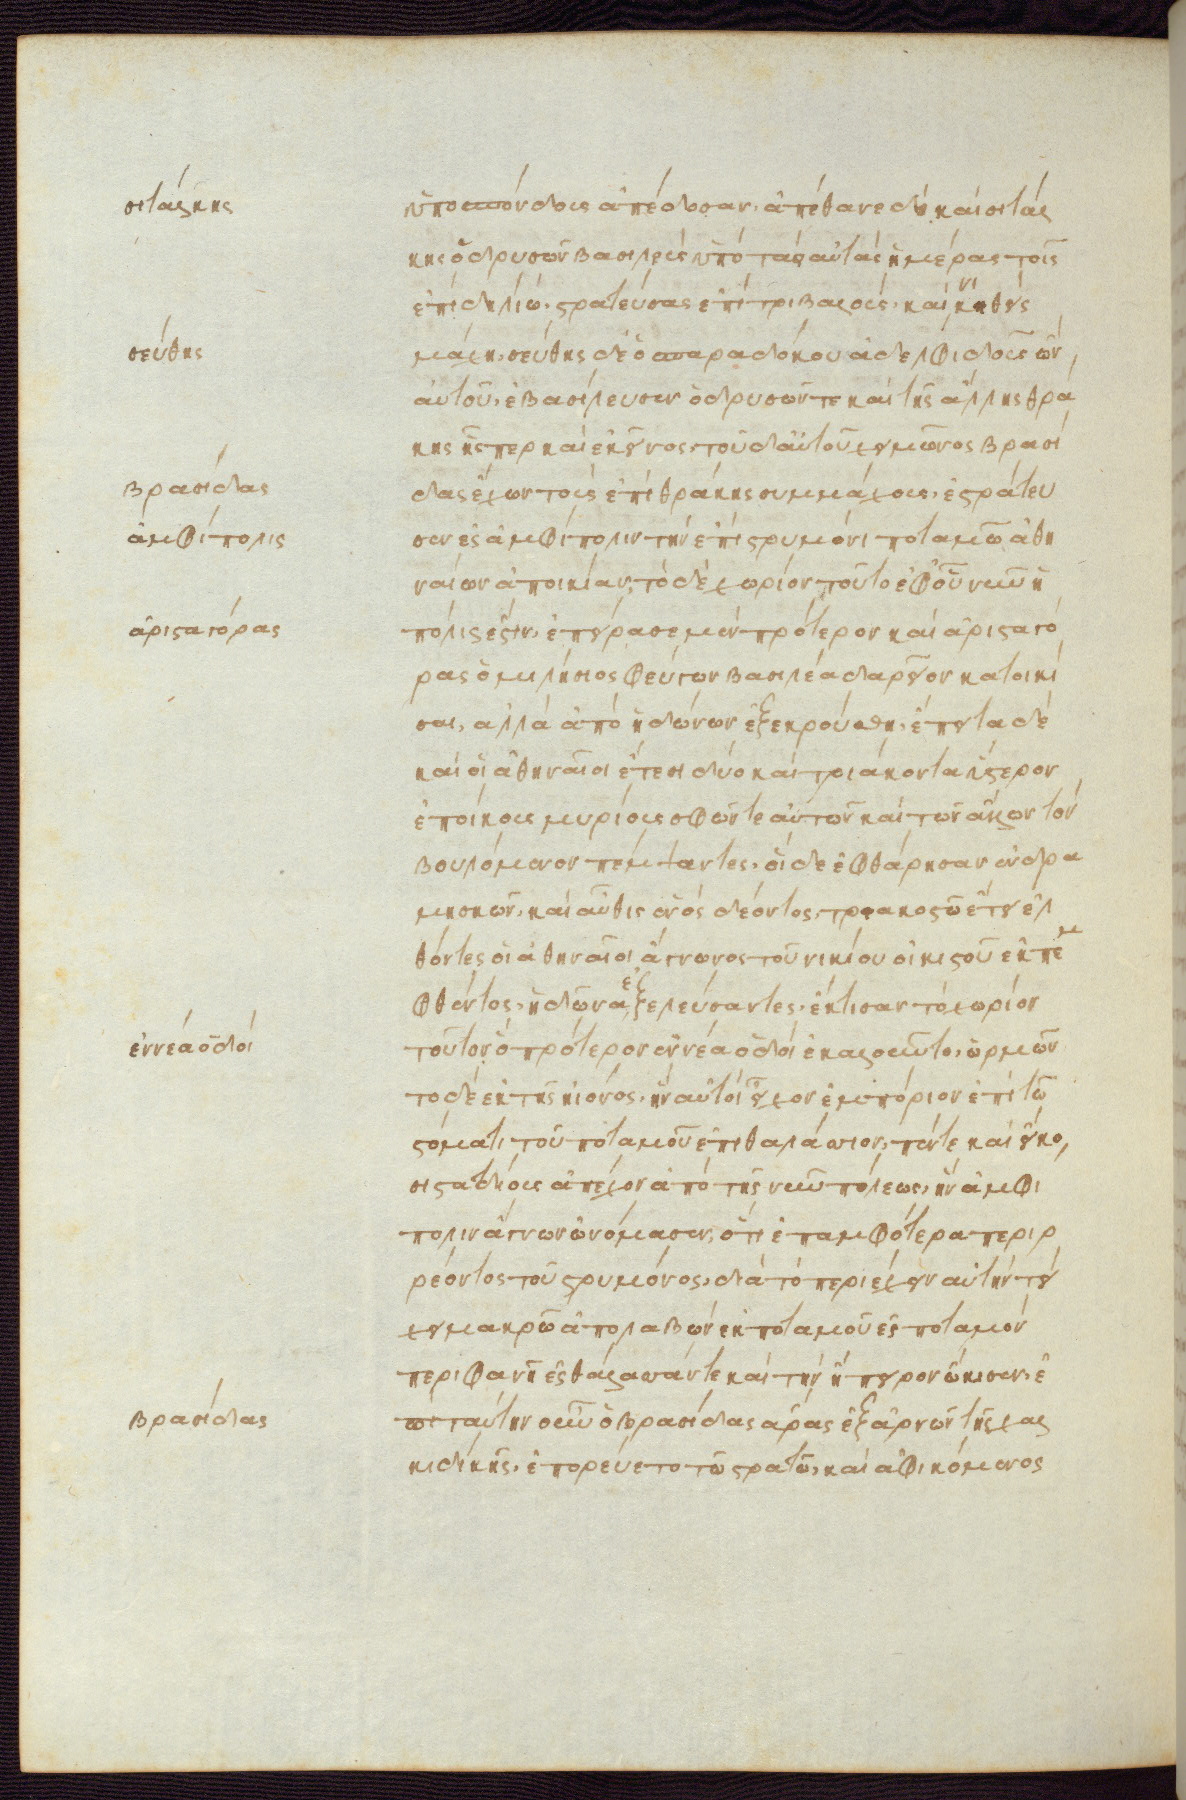 σιτάλκης
ὑποσπόνδους ἀπέδοσαν, ἀπέθανε δὲ καὶ σιτάλ
κης ὀδρυσῶν βασιλεὺς ὑπὸ τὰς αὐτὰς ἡμέρας τοῖς
ἐπὶ δηλίω, στρατεύσας ἐπὶ τριβαλοὺς, καὶ νικηθεὶς
σεύθης
μάχη, σεύθης δὲ ὁ σπαραδόκου ἀδελφιδοῦς ὢν
αὐτοῦ, ἐβασίλευσεν ὀδρυσῶν τε καὶ τῆς ἄλλης θρά
κης ἧσπερ καὶ ἐκεῖνος, τοῦ δ' αὐτοῦ χειμῶνος βρασί
βρασίδας
δας ἔχων τοὺς ἐπὶ θράκης συμμάχους, ἐστράτευ
ἀμφίπολις
σεν ἐς ἀμφίπολιν τὴν ἐπὶ στρυμόνι ποταμῶ ἀθη
ναίων ἀποικίαν, τὸ δὲ χωρίον τοῦτο ἐφ' οὗ νῦν ἡ
ἀρισταγόρας
πόλις ἐστὶν, ἐπείρασε μὲν πρότερον καὶ ἀρισταγό
ρας ὁ μιλήσιος φεύγων βασιλέα δαρεῖον κατοικί
σαι, ἀλλὰ ἀπὸ ἠδώνων ἐξεκρούσθη, ἔπειτα δὲ
καὶ οἱ ἀθηναῖοι ἔτεσι δύο καὶ τριάκοντα ὕστερον
ἐποίκους μυρίους σφῶν τε αὐτῶν καὶ τῶν ἄλλων τὸν
βουλόμενον πέμψαντες, οἳ διεφθάρησαν ἐν δρα
μησκῶ, καὶ αὖθις ἑνὸς δέοντος τριακοστῶ ἔτει ἐλ
θόντες οἱ ἀθηναῖοι ἅγνωνος τοῦ νικίου οἰκιστοῦ ἐκπεμ
φθέντος, ἠδῶνας ἐξελάσαντες, ἔκτισαν τὸ χωρίον
ἐννέα ὁδοί
τοῦτον, ὃ πρότερον ἐννέα ὁδοὶ ἐκαλοῦντο, ὡρμῶν
το δὲ ἐκ τῆς ἠιόνος, ἣν αὐτοὶ εἶχον ἐμπόριον ἐπὶ τῶ
στόματι τοῦ ποταμοῦ ἐπιθαλάσσιον, πέντε καὶ εἴκο
σι σταδίους ἀπέχον ἀπὸ τῆς νῦν πόλεως, ἣν ἀμφί
πολιν ἅγνων ὠνόμασεν, ὅτι ἐπ' ἀμφότερα περιρ
ρέοντος τοῦ στρυμόνος, διὰ τὸ περιέχειν αὐτὴν τεί
χει μακρῶ ἀπολαβὼν ἐκ ποταμοῦ ἐς ποταμὸν
περιφανῆ ἐς θάλασσάν τε καὶ τὴν ἤπειρον ὤκισεν, ἐ
βρασίδας
πὶ ταύτην οὖν ὁ βρασίδας ἄρας ἐξ ἀρνῶν τῆς χαλ
κιδικῆς, ἐπορεύετο τῶ στρατῶ, καὶ ἀφικόμενος